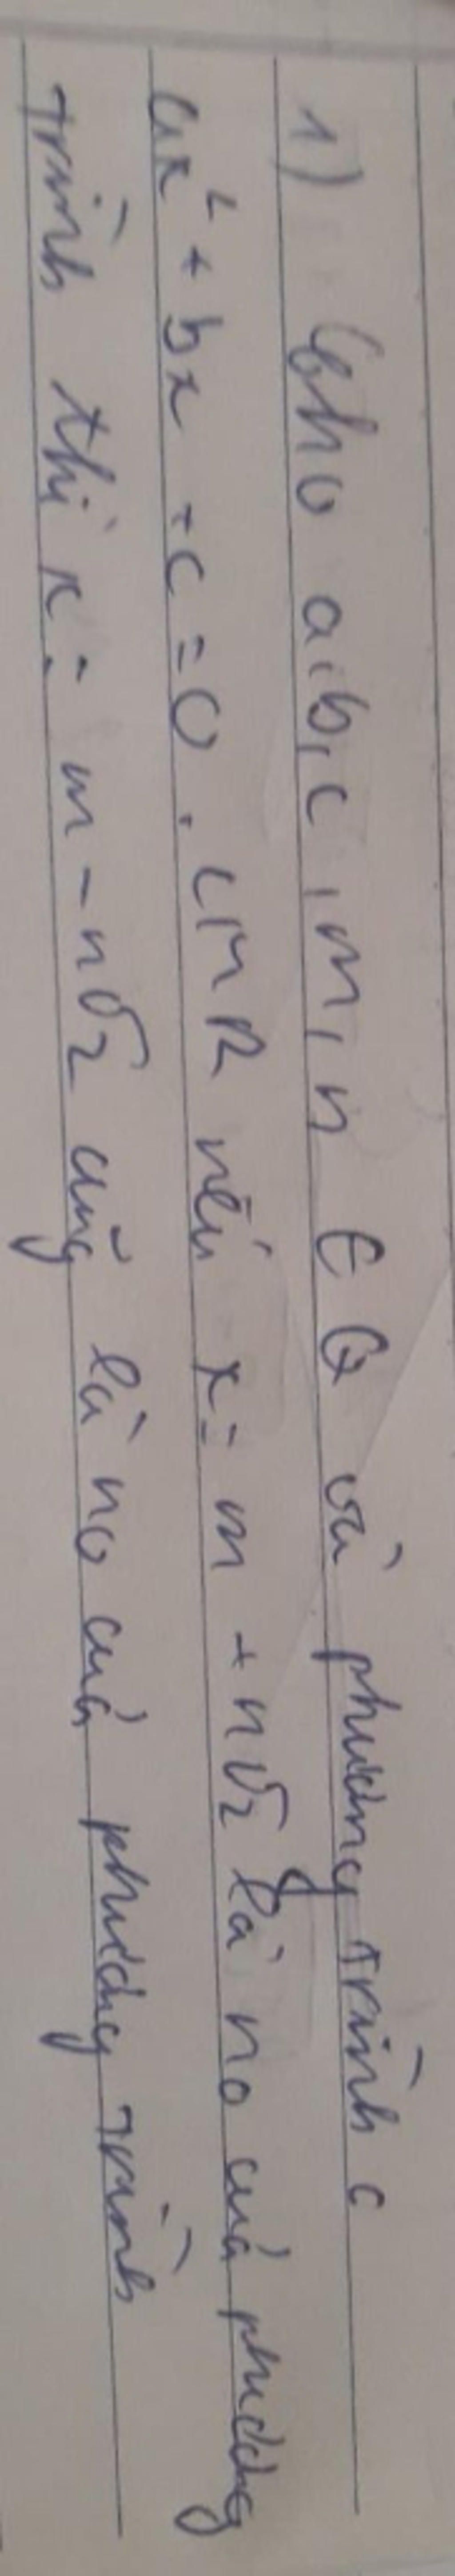 1) Cho a, b, c, m, n ∈ Q và phương trình c
ax² + bx + c = 0. CMR nếu x = m + n√2 là no cuả phương
trình thì x = m - n√2 cũng là no cuả phương trình